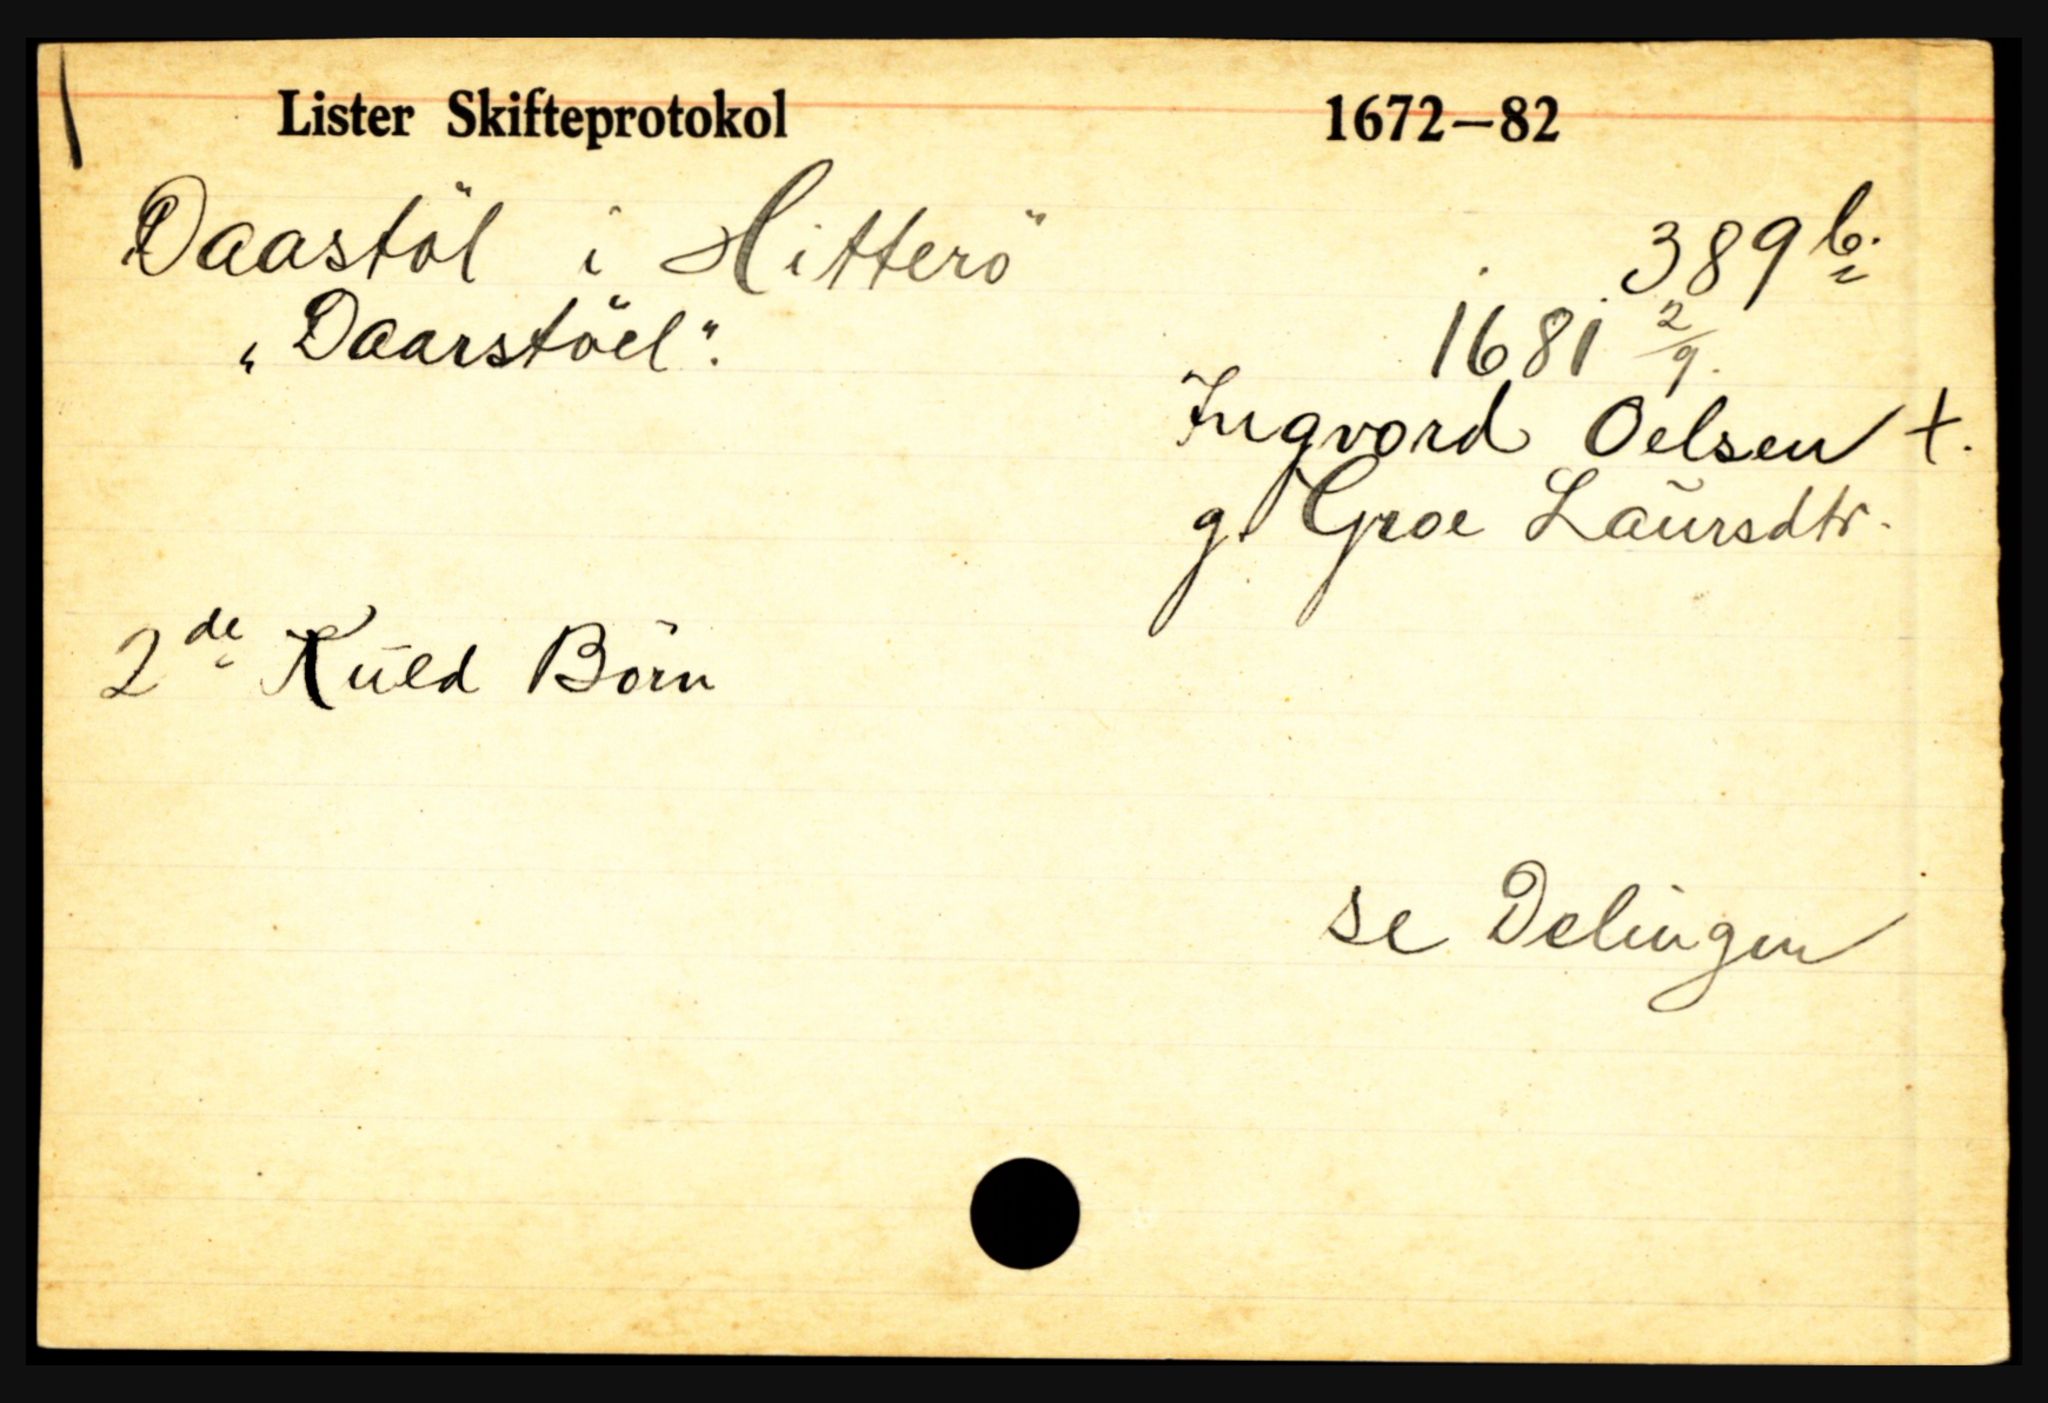 Lister Skifteprotokol 1672—82
Daastöl i Hitterö 389 b.
„Daarstöel". 1681 2/9.
Ingvord Oelsen †.
g. Groe Laursdtr.
2de Kuld Börn
se Delingen